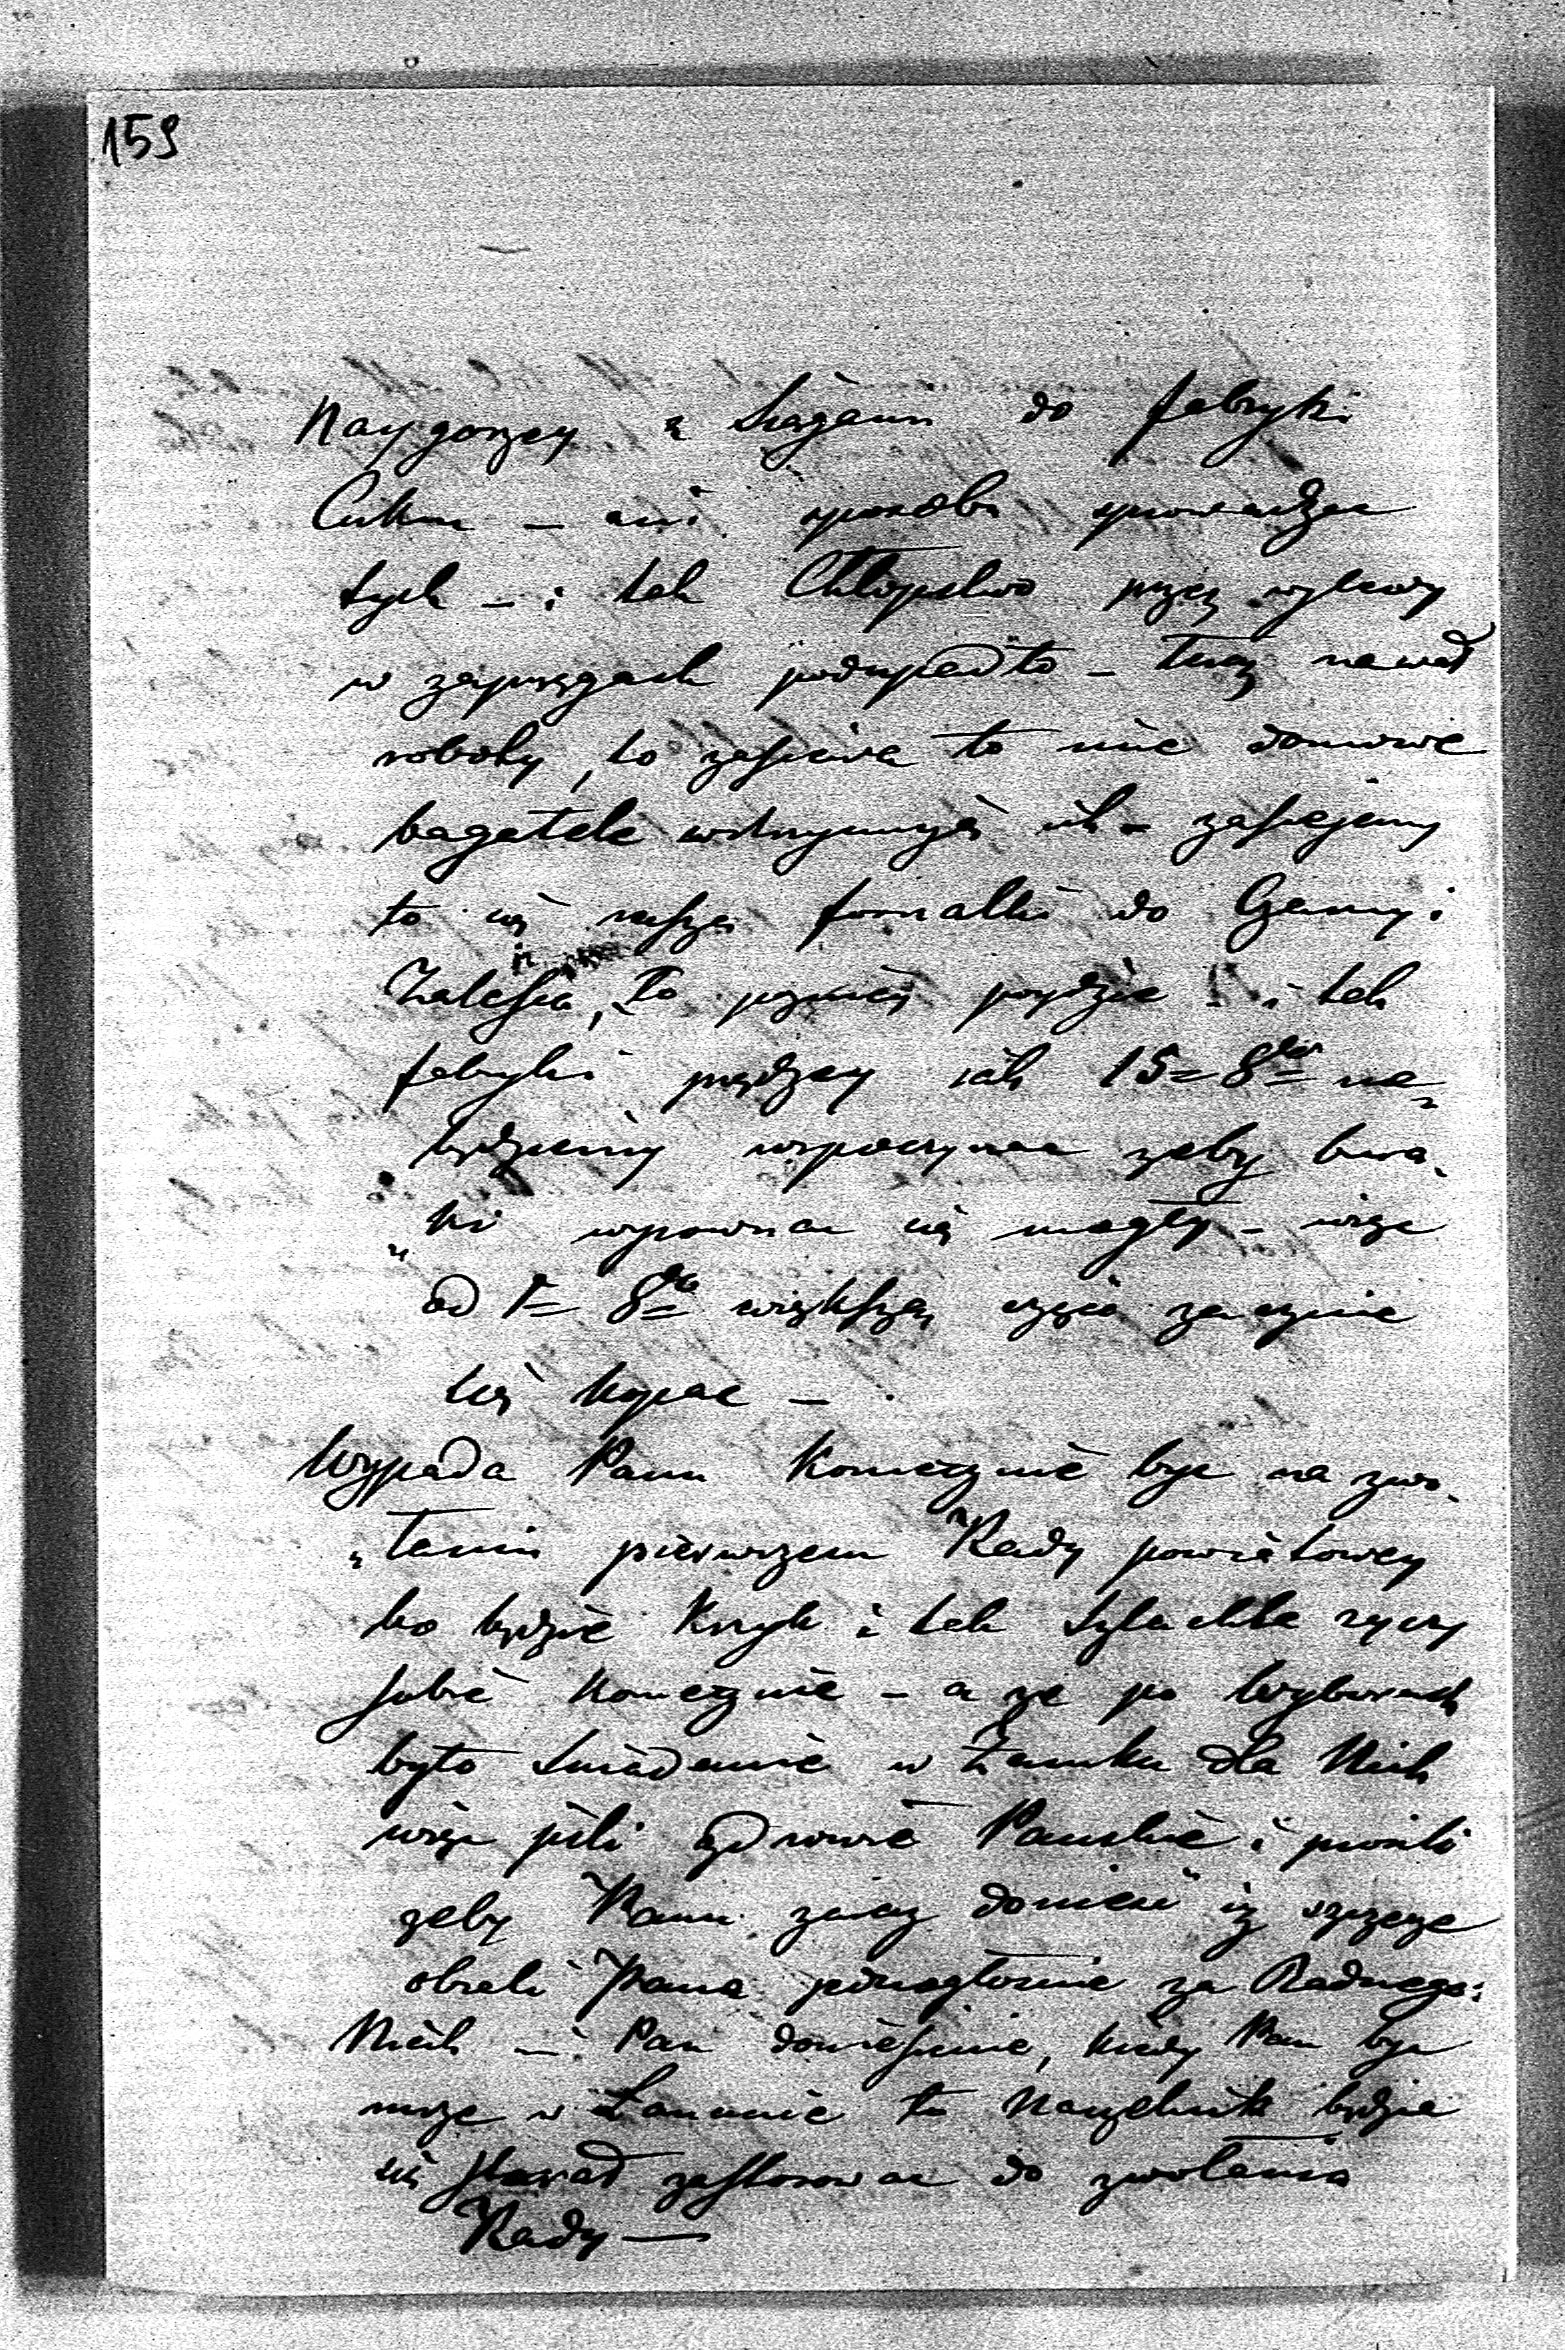 159
Naygorzey z Sągami do fabryki
Cukru – ani sposobu sprowadzen
tych – i tak Chłopstwo przez wylewy
w zaprzęgach podupadło – Teraz nawał
roboty, to zasiewa to inne domowe
bagatele wstrzymuje ich – zasiejemy
to się nasze fornalki do Gzamy i
Zalesia, to pozniey poydzie – i tak
fabryki prędzey jak 15= 8bra nie
będziemy wypoczynac zeby bura„
„ki wyrownac się mogły – więc
od 1= 8bra większa częsc zacznie
się kopac –
Wypada Panu Koniecznie byc na zwo„
„łaniu pierwszem Rady powiatowey
bo będzie Krzyk i tak Szlachta zyczy
sobie Koniecznie – a ze po Wyborach
było Sniadanie w Zamku dla Nich
więc pili zdrowie Panskie i prosili
zeby Panu zaraz doniesc iz szczerze
obrali Pana jednogłosnie za Radnego:
Niech – Pan doniesie, kiedy Pan byc
moze w to Naczelnik będzie
się starał zastosowac do zwołania
Rady —